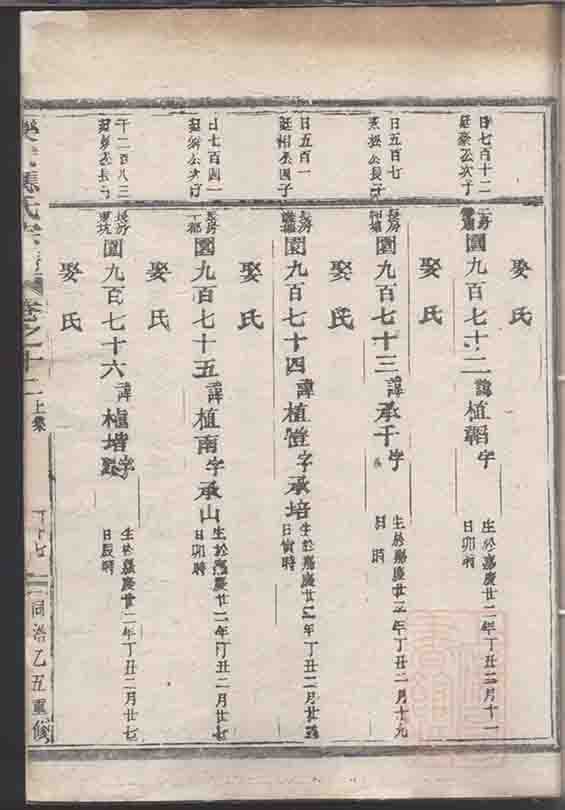 日七百十二
廷豪公次子
園九百七十二 諱植
字
生於嘉慶廿二年丁丑二月十一
日卯時
娶氏
日五百七
公長子
長房
園九百七十三 諱承于
字
生於嘉慶廿二年丁丑二月十九
日 時
娶氏
日五百一
廷相公四子
長房
園九百七十四 諱植
字承培
生於嘉慶廿二年丁丑二月廿
日寅時
娶氏
日七百四一
公次子
長房
園九百七十五 諱植南
字承山
生於嘉慶廿二年丁丑二月廿七
日卯時
娶氏
千二百八三
公長子
長房
園九百七十六 諱植堦
字
生於嘉慶廿二年丁丑二月廿七
日辰時
娶氏
氏宗譜 卷之十二上集
同治乙丑重修